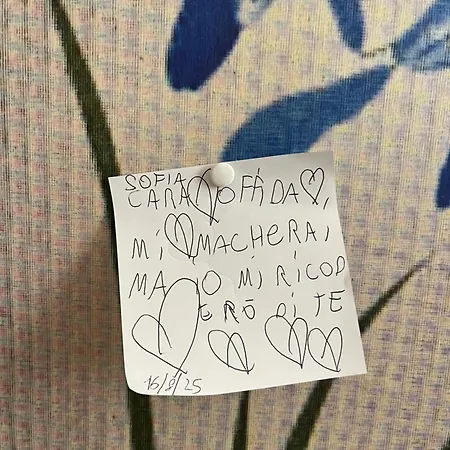 SOFIA
CARA OFIDA,
MÍ MACHERAI
MA IO MI RICOD
ERÒ DI TE
16/8/25